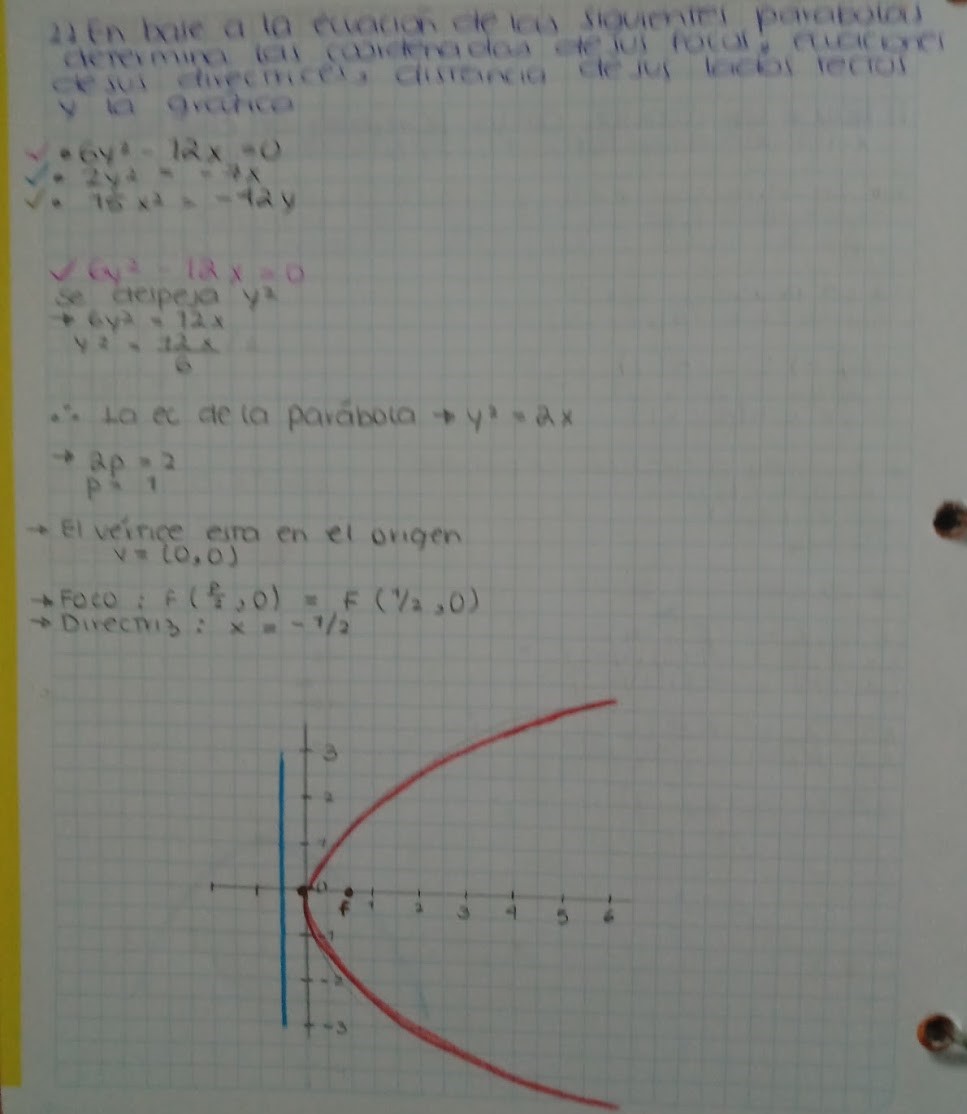 2) En base a la ecuación de las siguientes parabolas
determina las coordenadas de sus focos, ecuaciones
de sus directrices, distancia de sus lados rectos
y la grafica
✓ • 6y² - 12x = 0
✓ • 2y² = -7x
✓ • 15x² = -12y
✓ 6y² - 12x = 0
Se despeja y²
→ 6y² = 12x
y² = 12x
6
∴ La ec de la parábola → y² = 2x
→ 2p = 2
p = 1
→ El vértice esta en el origen
V = (0,0)
→ Foco : F (P/2, 0) = F (1/2, 0)
→ Directriz : x = -1/2
3
2
1
0
F 1 2 3 4 5 6
-1
-2
-3